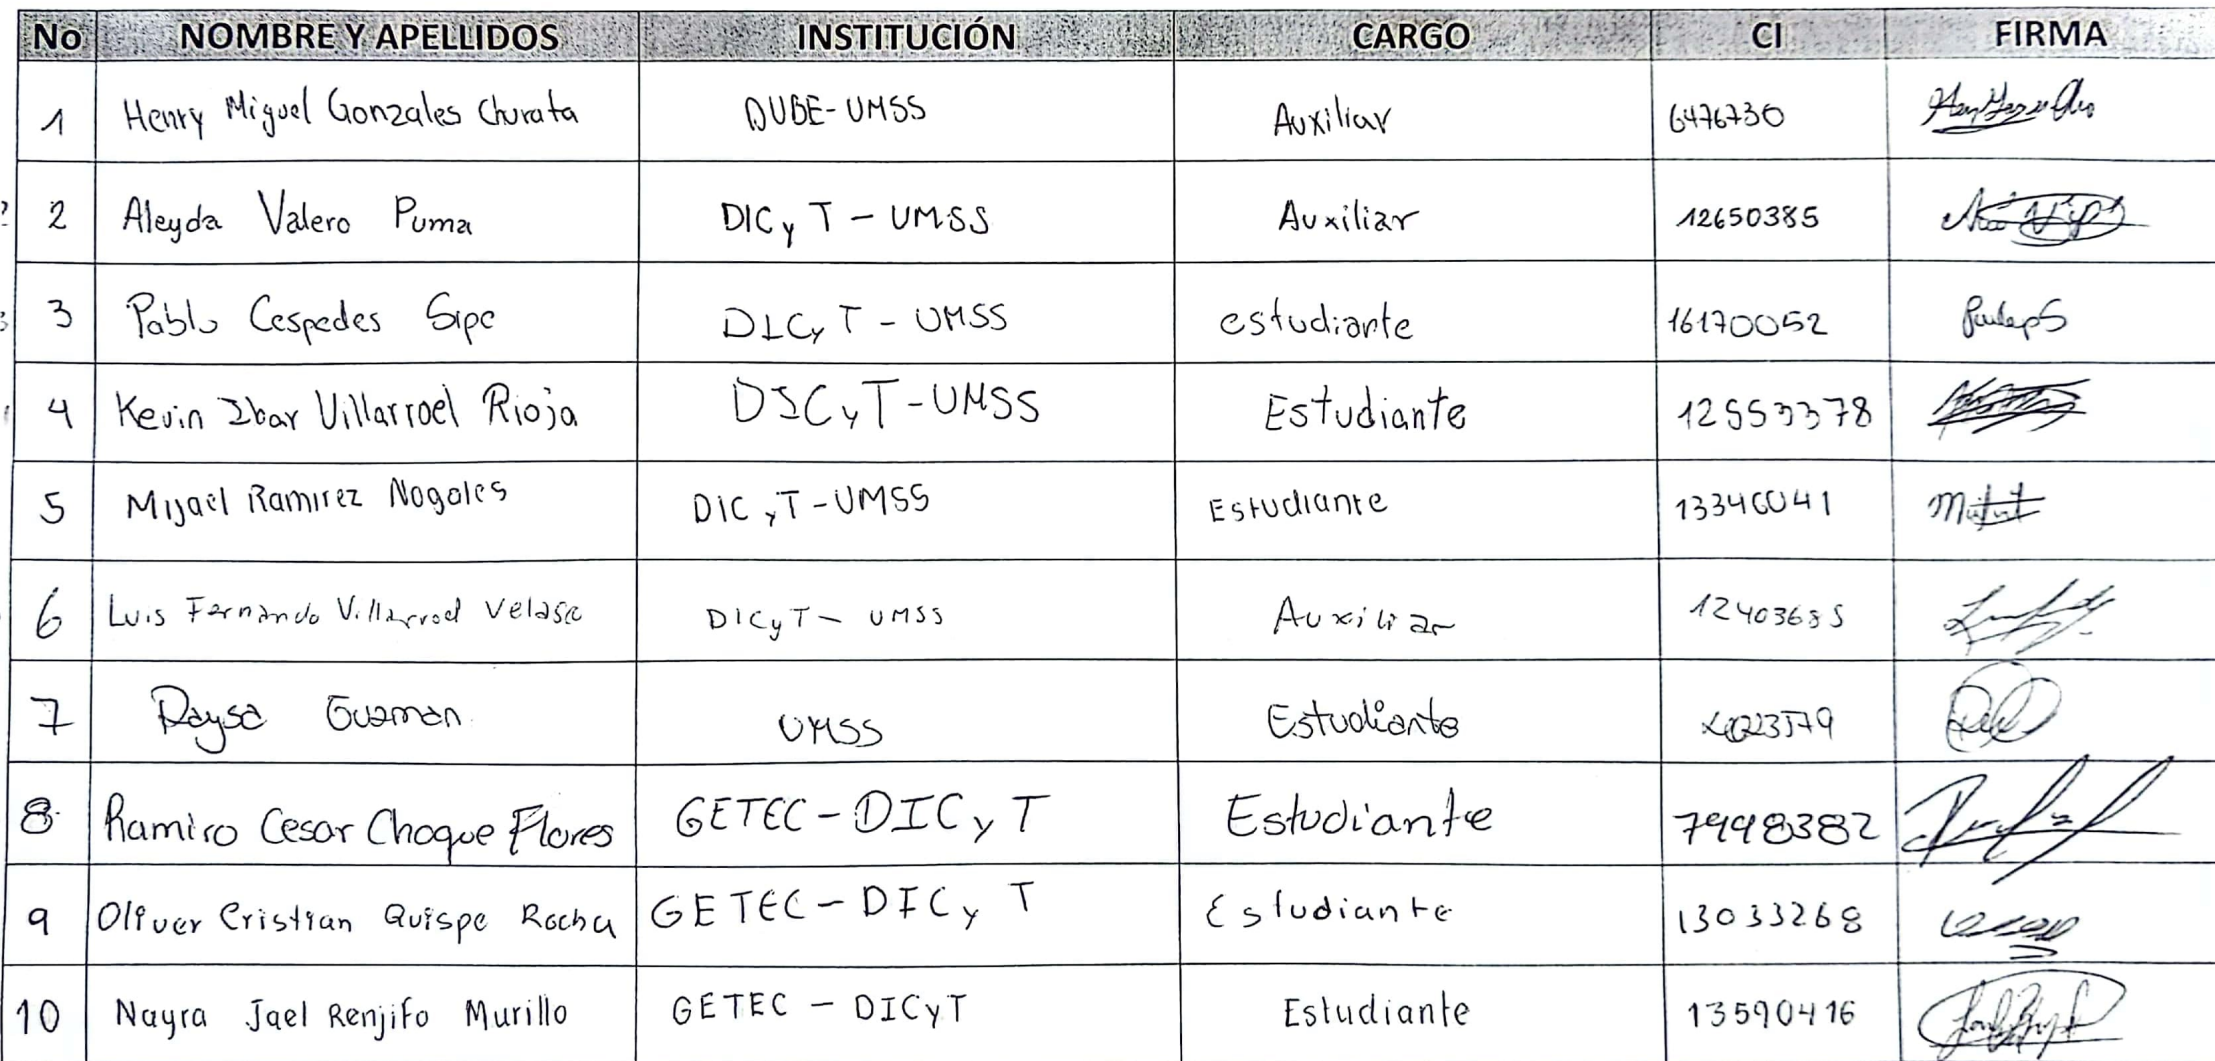 No NOMBRE Y APELLIDOS INSTITUCIÓN CARGO CI FIRMA
1 Henry Miguel Gonzales Churata DUBE-UMSS Auxiliar 6476730
2 Aleyda Valero Puma DICyT - UMSS Auxiliar 12650385
3 Pablo Cespedes Sipe DICyT - UMSS estudiante 16170052
4 Kevin Ibar Villarroel Rioja DICyT-UMSS Estudiante 12553378
5 Mijael Ramirez Nogales DICyT-UMSS Estudiante
6 Luis Fernando Villarroel Velasco DICyT - UMSS Auxiliar 12403685
7 Raysa Guzman UMSS Estudiante
8 Ramiro Cesar Choque Flores GETEC-DICyT Estudiante 7998382
9 Oliver Cristian Quispe Rocha GETEC-DICyT Estudiante 13033268
10 Nayra Jael Renjifo Murillo GETEC - DICyT Estudiante 13590416